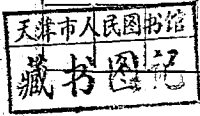 天津市人民图书馆
藏书图记